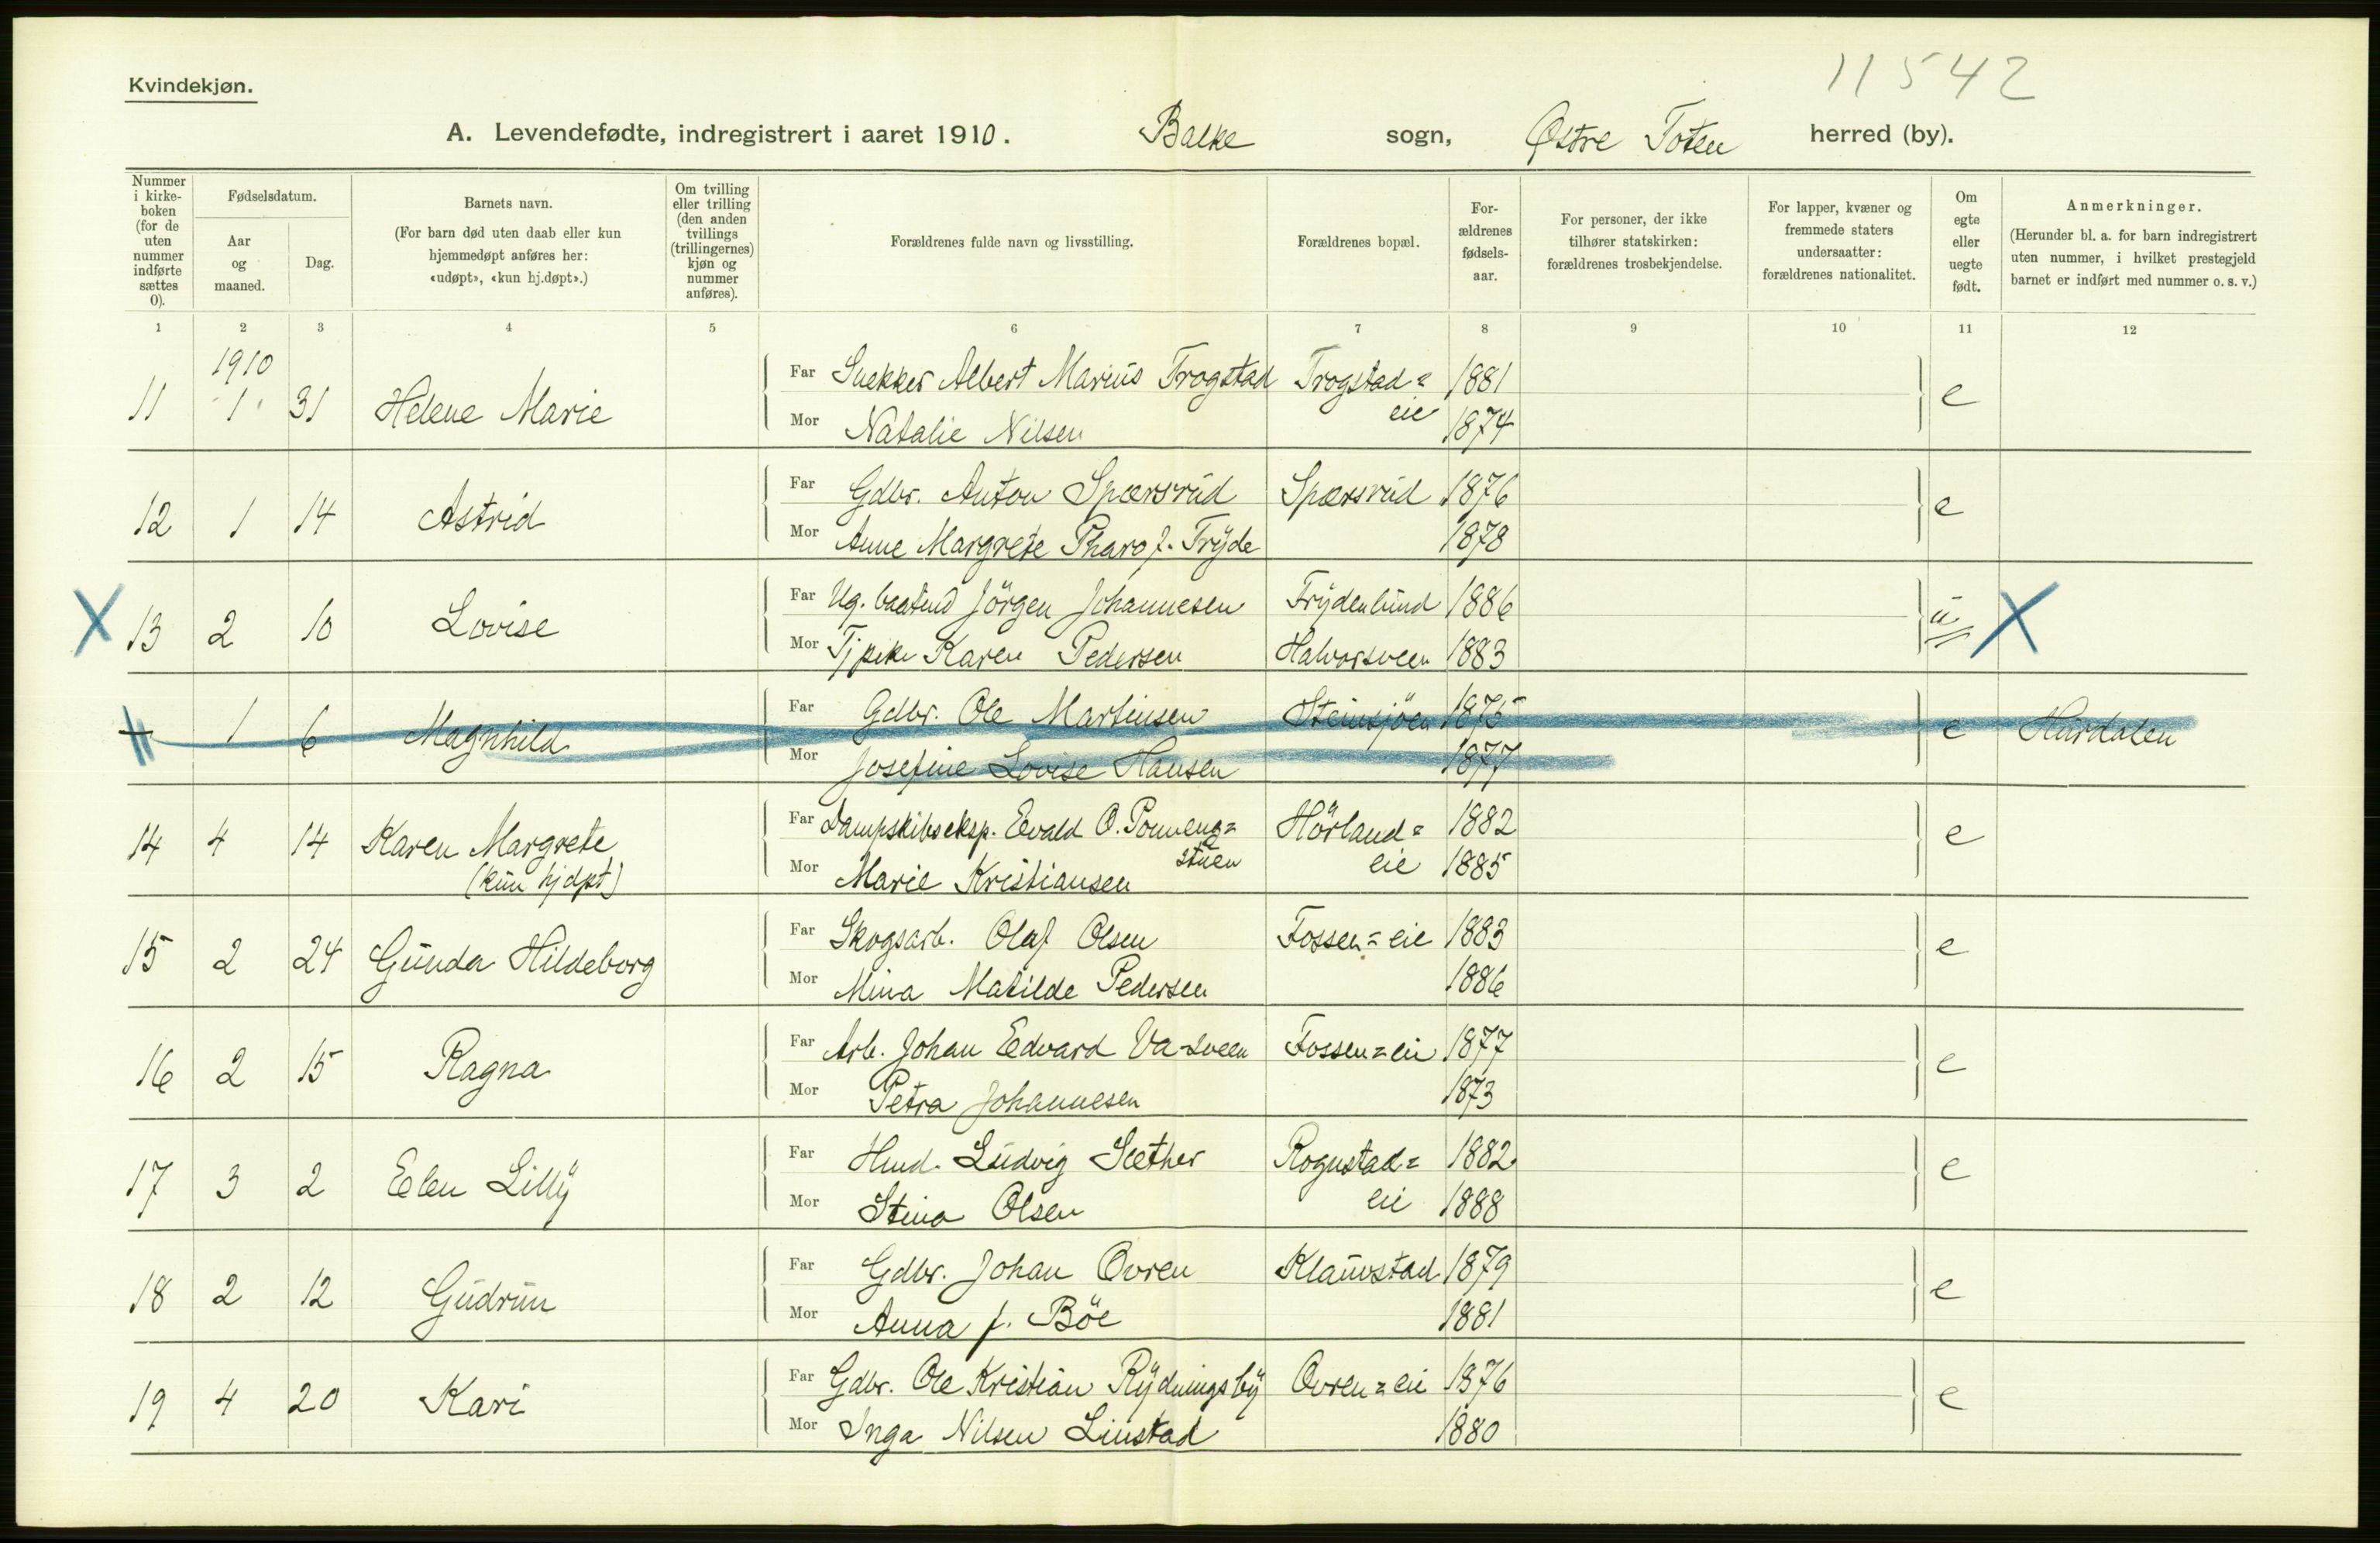 11542
Kvindekjøn.
A. Levendefødte, indregistrert i aaret 1910. Balke sogn, Østre Toten herred (by).
Nummer i kirke- boken (for de uten nummer indførte sættes 0).
Fødselsdatum.
Aar og maaned.
Dag.
Barnets navn.
(For barn død uten daab eller kun hjemmedøpt anføres her: «udøpt», «kun hj.døpt».)
Om tvilling eller trilling (den anden tvillings (trillingernes) kjøn og nummer anføres).
Forældrenes fulde navn og livsstilling.
Forældrenes bopæl.
For- ældrenes fødsels- aar.
For personer, der ikke tilhører statskirken: forældrenes trosbekjendelse.
For lapper, kvæner og fremmede staters undersaatter: forældrenes nationalitet.
Om egte eller uegte født.
Anmerkninger.
(Herunder bl. a. for barn indregistrert uten nummer, i hvilket prestegjeld barnet er indført med nummer o. s. v.)
1 2 3 4 5 6 7 8 9 10 11 12
1910
11 1 31 Helene Marie Far Snekker Albert Marius Trogstad Trogstad= 1881 e
Mor Natalie Nilsen eie 1874
12 1 14 Astrid Far Gdbr. Anton Spærsrud Spærsrud 1876 e
Mor Anne Margrete Tharo f. Fryde 1878
X 13 2 10 Lovise Far Ug. baatsmd Jörgen Johannesen Frydenlund 1886 u X
Mor Tj pike Karen Pedersen Halvorsveen 1883
1 6 Magnhild Far Gdbr. Ole Martinsen Steinsjöen 1875 e Hurdalen
Mor Josefine Lovise Hansen 1877
14 4 14 Karen Margrete Far Dampskibseksp. Evald O. Ponneng= Hörland= 1882 e
stuen
(kun hjdpt) Mor Marie Kristiansen eie 1885
15 2 24 Gunda Hildeborg Far Skogsarb. Olaf Olsen Fossen=eie 1883 e
Mor Mina Matilde Pedersen 1886
16 2 15 Ragna Far Arb. Johan Edvard Va-sveen Fossen=eie 1877 e
Mor Petra Johannesen 1873
17 3 2 Elen Lilly Far Hmd. Ludvig Sæther Rognstad= 1882 e
Mor Stina Olsen eie 1888
18 2 12 Gudrun Far Gdbr. Johan Ovren Klauvstad 1879 e
Mor Anna f. Böe 1881
19 4 20 Kari Far Gdbr. Ole Kristian Rydningsby Ovren=eie 1876 e
Mor Inga Nilsen Linstad 1880